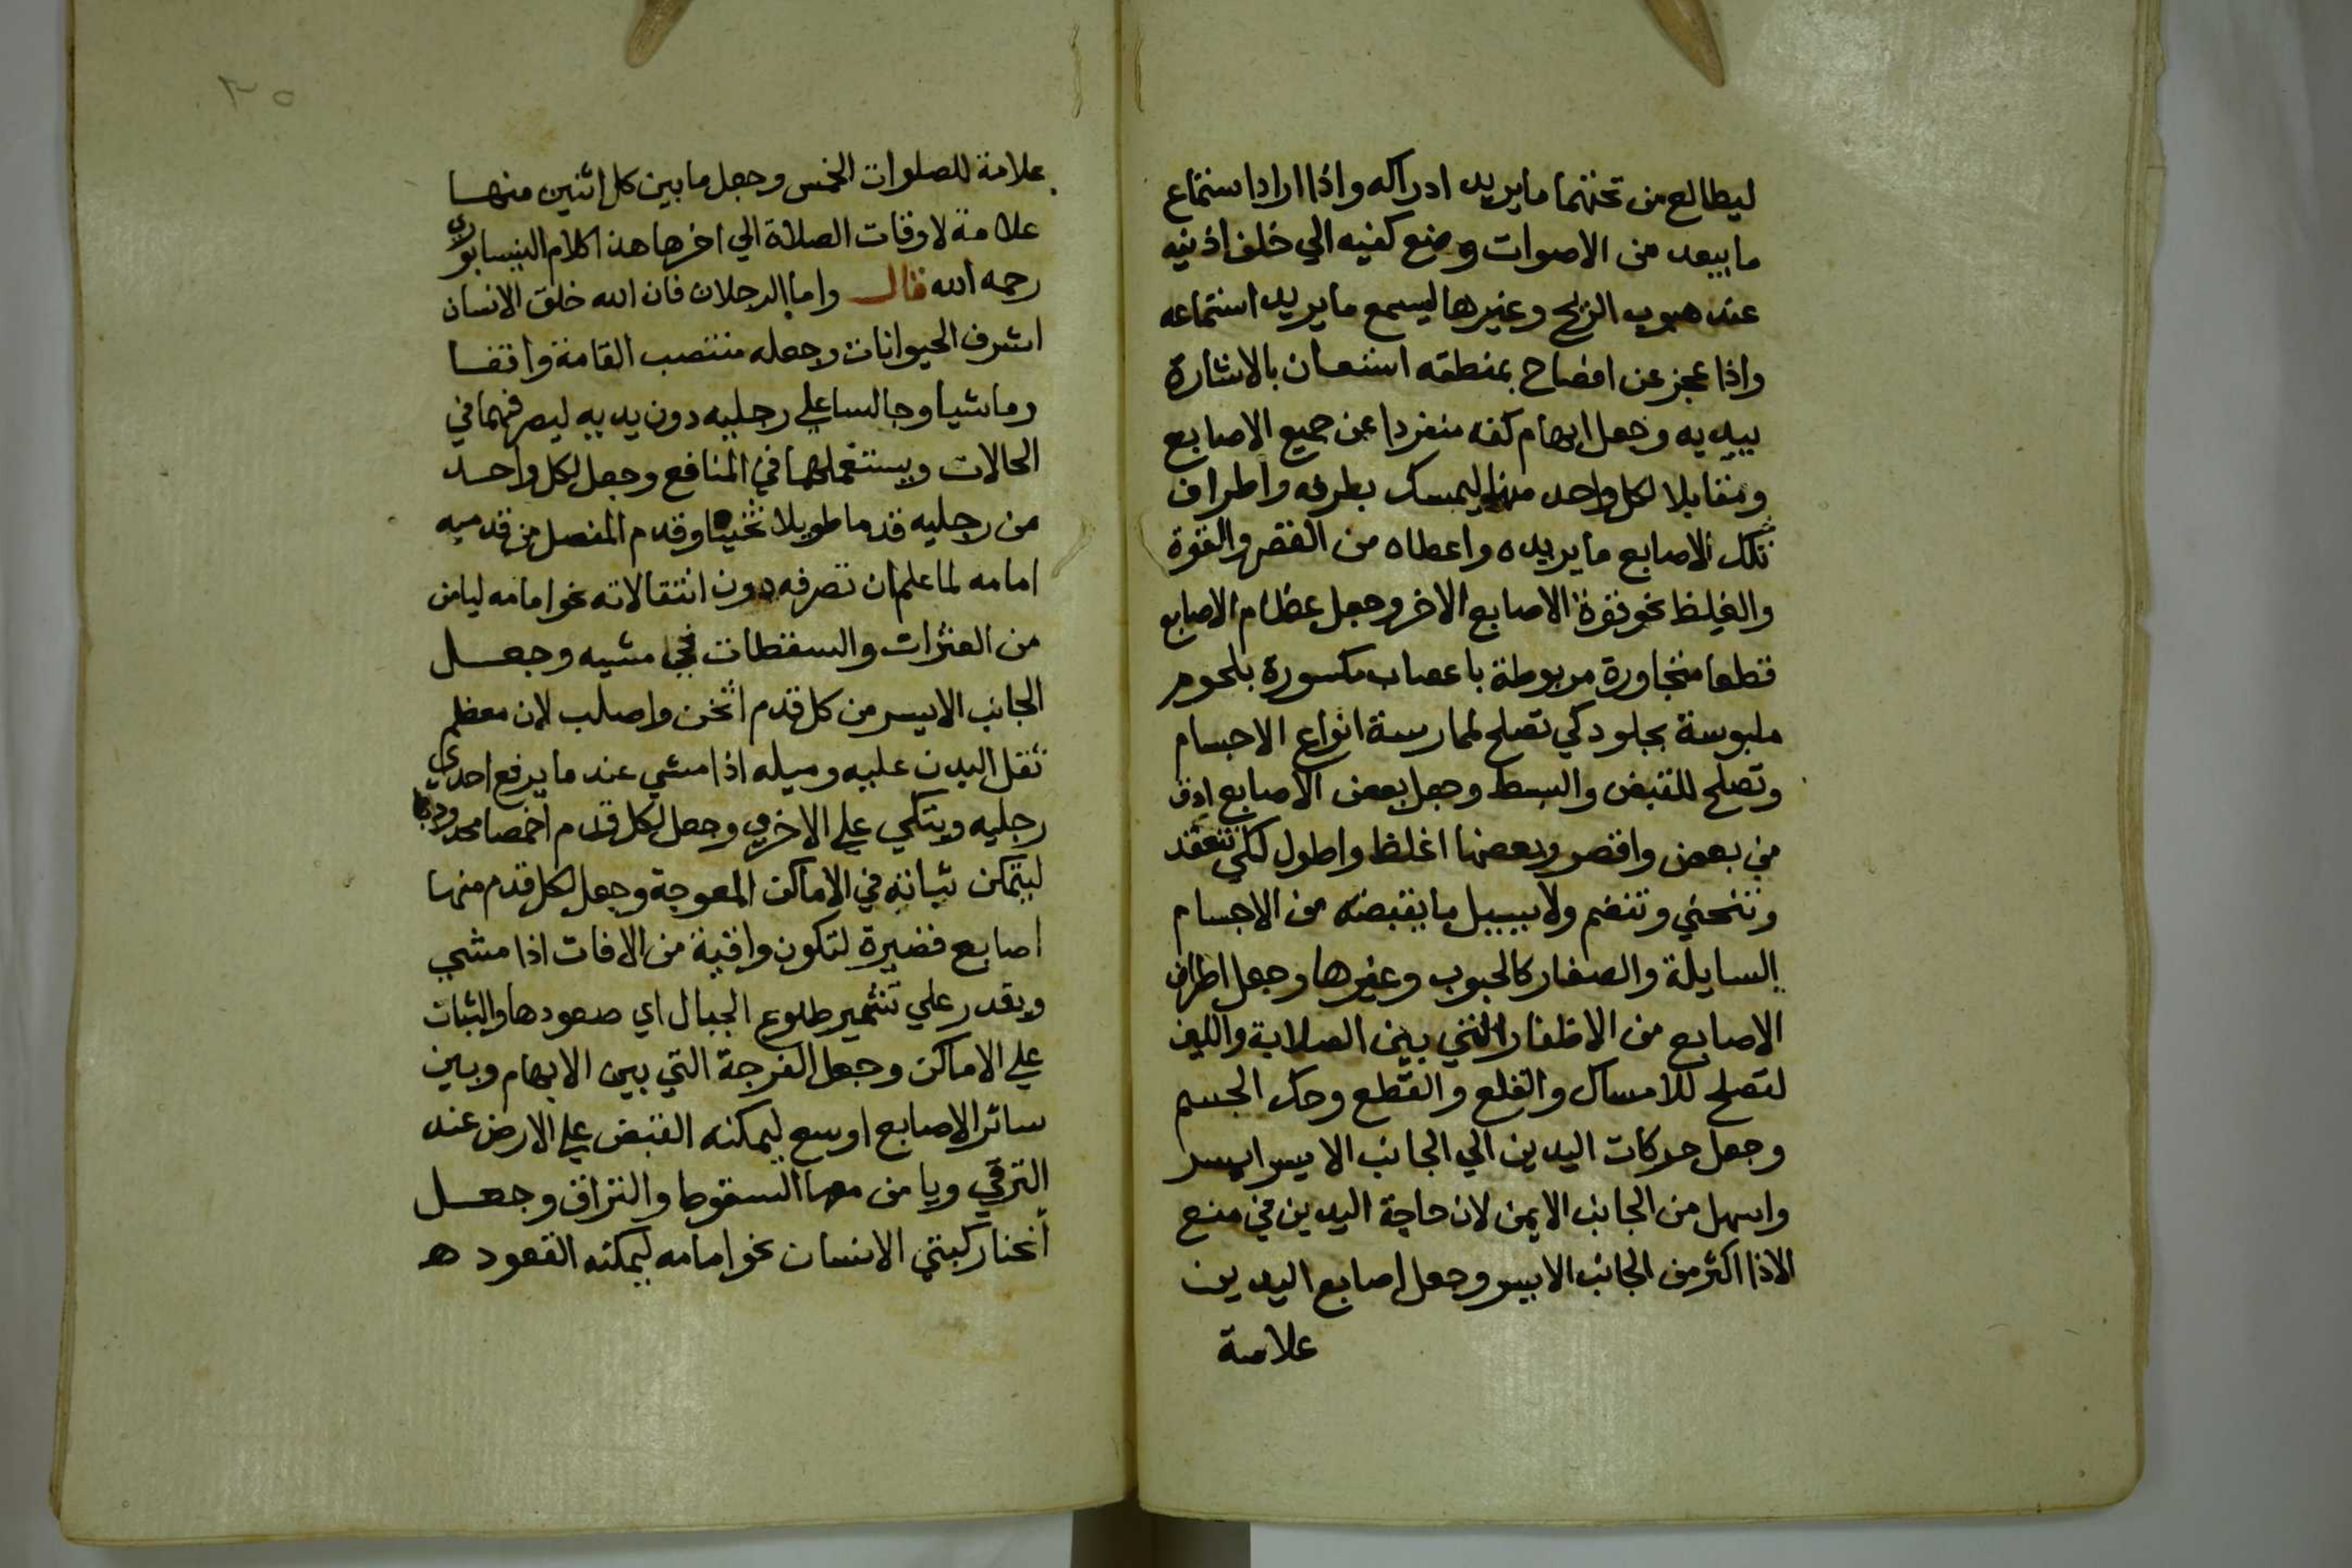 ليطالع من تحتهما ما يريد ادراكه واذا اراد استماع
ما يبعد من الاصوات وضع كفيه الي خلف اذنيه
عند هبوب الريح وغيرها ليسمع ما يريد استماعه
واذا عجز عن افصاح بمنطقه استعان بالاشارة
بيديه وجعل ابهام كفه منفردا عن جميع الاصابع
ومقابلا لكل واحد منها ليمسك بطرفه واطراف
تلك الاصابع ما يريده واعطاه من القصر والقوة
والغلظ نحو قوة الاصابع الاخر وجعل عظام الاصابع
قطعا متجاورة مربوطة باعصاب مكسورة بلحوم
ملبوسة بجلود كي تصلح لممارسة انواع الاجسام
وتصلح للقبض والبسط وجعل بعض الاصابع ادق
من بعض واقصر وبعضها اغلظ واطول لكي تنعقد
وتنحني وتنضم ولا يسيل ما يقبضه من الاجسام
السايلة والصغار كالحبوب وغيرها وجعل اطراف
الاصابع من الاظفار التي بين الصلابة واللين
لتصلح للامساك والقلع والقطع وحك الجسم
وجعل حركات اليدين الي الجانب الايسر ايسر
واسهل من الجانب الايمن لان حاجة اليدين في منع
الاذا اكثر من الجانب الايسر وجعل اصابع اليدين
علامة
٣٥
علامة للصلوات الخمس وجعل ما بين كل اثنين منها
علامة لاوقات الصلاة الي اخرها هذا كلام النيسابوري
رحمه الله قال واما الرجلان فان الله خلق الانسان
اشرف الحيوانات وجعله منتصب القامة واقفا
وماشيا وجالسا علي رجليه دون يديه ليصرفهما في
الحالات ويستعملهما في المنافع وجعل لكل واحد
من رجليه قدما طويلا ثخينا وقدم المفصل من قدميه
امامه لما علم ان تصرفه دون انتقالاته نحو امامه ليامن
من العثرات والسقطات في مشيه وجعل
الجانب الايسر من كل قدم اثخن واصلب لان معظم
ثقل البدن عليه وميله اذا مشي عند ما يرفع احدي
رجليه ويتكي علي الاخري وجعل لكل قدم اخمصا محدودبا
ليتمكن ثباته في الاماكن المعوجة وجعل لكل قدم منها
اصابع قصيرة لتكون واقية من الافات اذا مشي
ويقدر علي تشمير طلوع الجبال اي صعودها والثبات
علي الاماكن وجعل الفرجة التي بين الابهام وبين
سائر الاصابع اوسع ليمكنه القبض علي الارض عند
الترقي ويامن معها السقوط والنزاق وجعل
انحنا ركبتي الانسان نحو امامه ليمكنه القعود ه